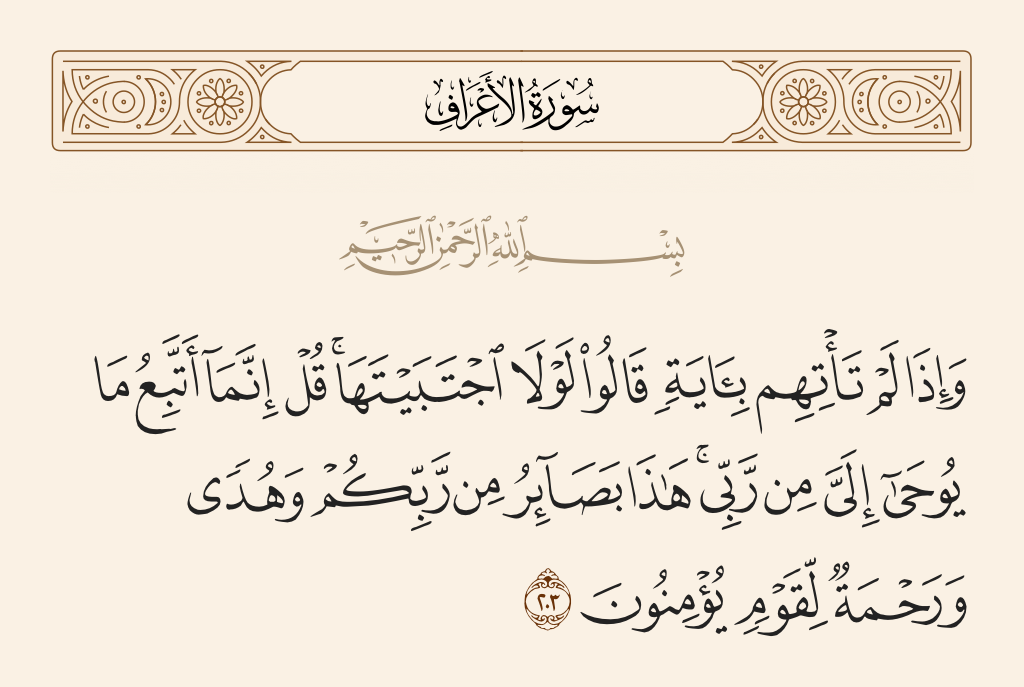 سُورَةُ الأَعْرَافِ
بِسْمِ ٱللَّهِ ٱلرَّحْمَٰنِ ٱلرَّحِيمِ
وَإِذَا لَمْ تَأْتِهِم بِـَٔايَةٍ قَالُوا۟ لَوْلَا ٱجْتَبَيْتَهَا ۚ قُلْ إِنَّمَآ أَتَّبِعُ مَا
يُوحَىٰٓ إِلَىَّ مِن رَّبِّى ۚ هَٰذَا بَصَآئِرُ مِن رَّبِّكُمْ وَهُدًى
وَرَحْمَةٌ لِّقَوْمٍ يُؤْمِنُونَ ٢٠٣